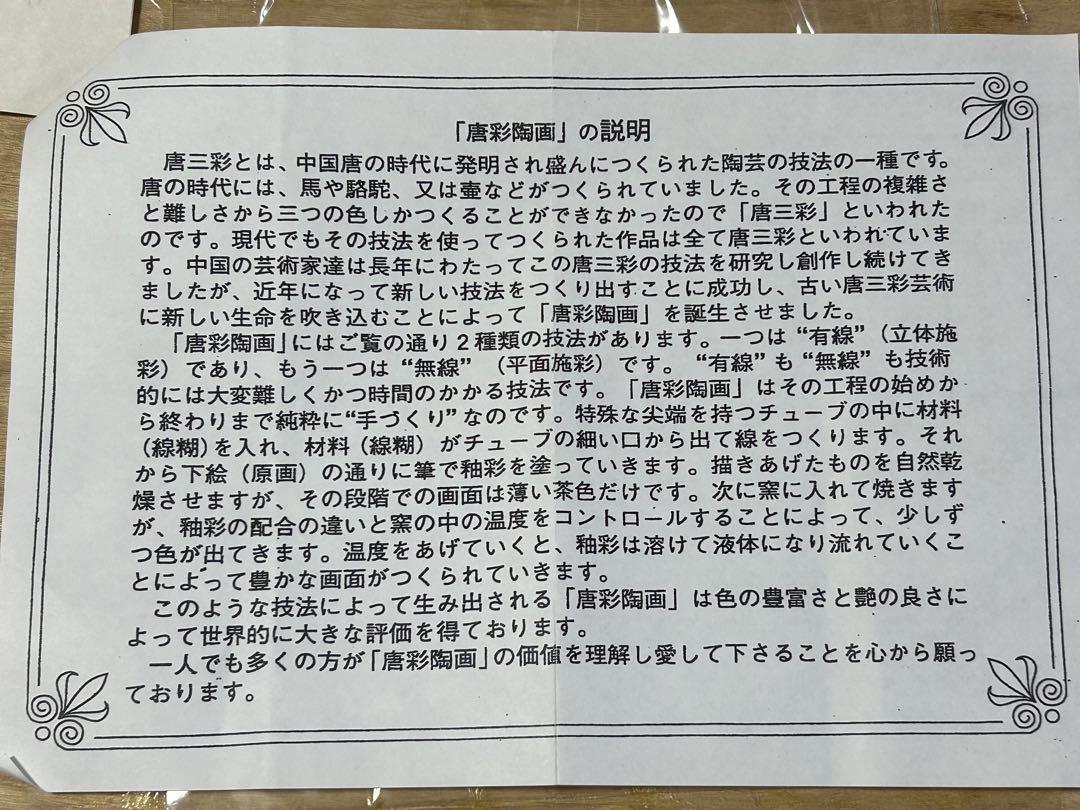 「唐彩陶画」の説明
唐三彩とは、中国唐の時代に発明され盛んにつくられた陶芸の技法の一種です。
唐の時代には、馬や駱駝、又は壷などがつくられていました。その工程の複雑さ
と難しさから三つの色しかつくることができなかったので「唐三彩」といわれた
のです。現代でもその技法を使ってつくられた作品は全て唐三彩といわれていま
す。中国の芸術家達は長年にわたってこの唐三彩の技法を研究し創作し続けてき
ましたが、近年になって新しい技法をつくり出すことに成功し、古い唐三彩芸術
に新しい生命を吹き込むことによって「唐彩陶画」を誕生させました。
「唐彩陶画」にはご覧の通り2種類の技法があります。一つは“有線”（立体施
彩）であり、もう一つは“無線”（平面施彩）です。“有線”も“無線”も技術
的には大変難しくかつ時間のかかる技法です。「唐彩陶画」はその工程の始めか
ら終わりまで純粋に“手づくり”なのです。特殊な尖端を持つチューブの中に材料
（線糊）を入れ、材料（線糊）がチューブの細い口から出て線をつくります。それ
から下絵（原画）の通りに筆で釉彩を塗っていきます。描きあげたものを自然乾
燥させますが、その段階での画面は薄い茶色だけです。次に窯に入れて焼きます
が、釉彩の配合の違いと窯の中の温度をコントロールすることによって、少しず
つ色が出てきます。温度をあげていくと、釉彩は溶けて液体になり流れていくこ
とによって豊かな画面がつくられていきます。
このような技法によって生み出される「唐彩陶画」は色の豊富さと艶の良さに
よって世界的に大きな評価を得ております。
一人でも多くの方が「唐彩陶画」の価値を理解し愛して下さることを心から願っ
ております。